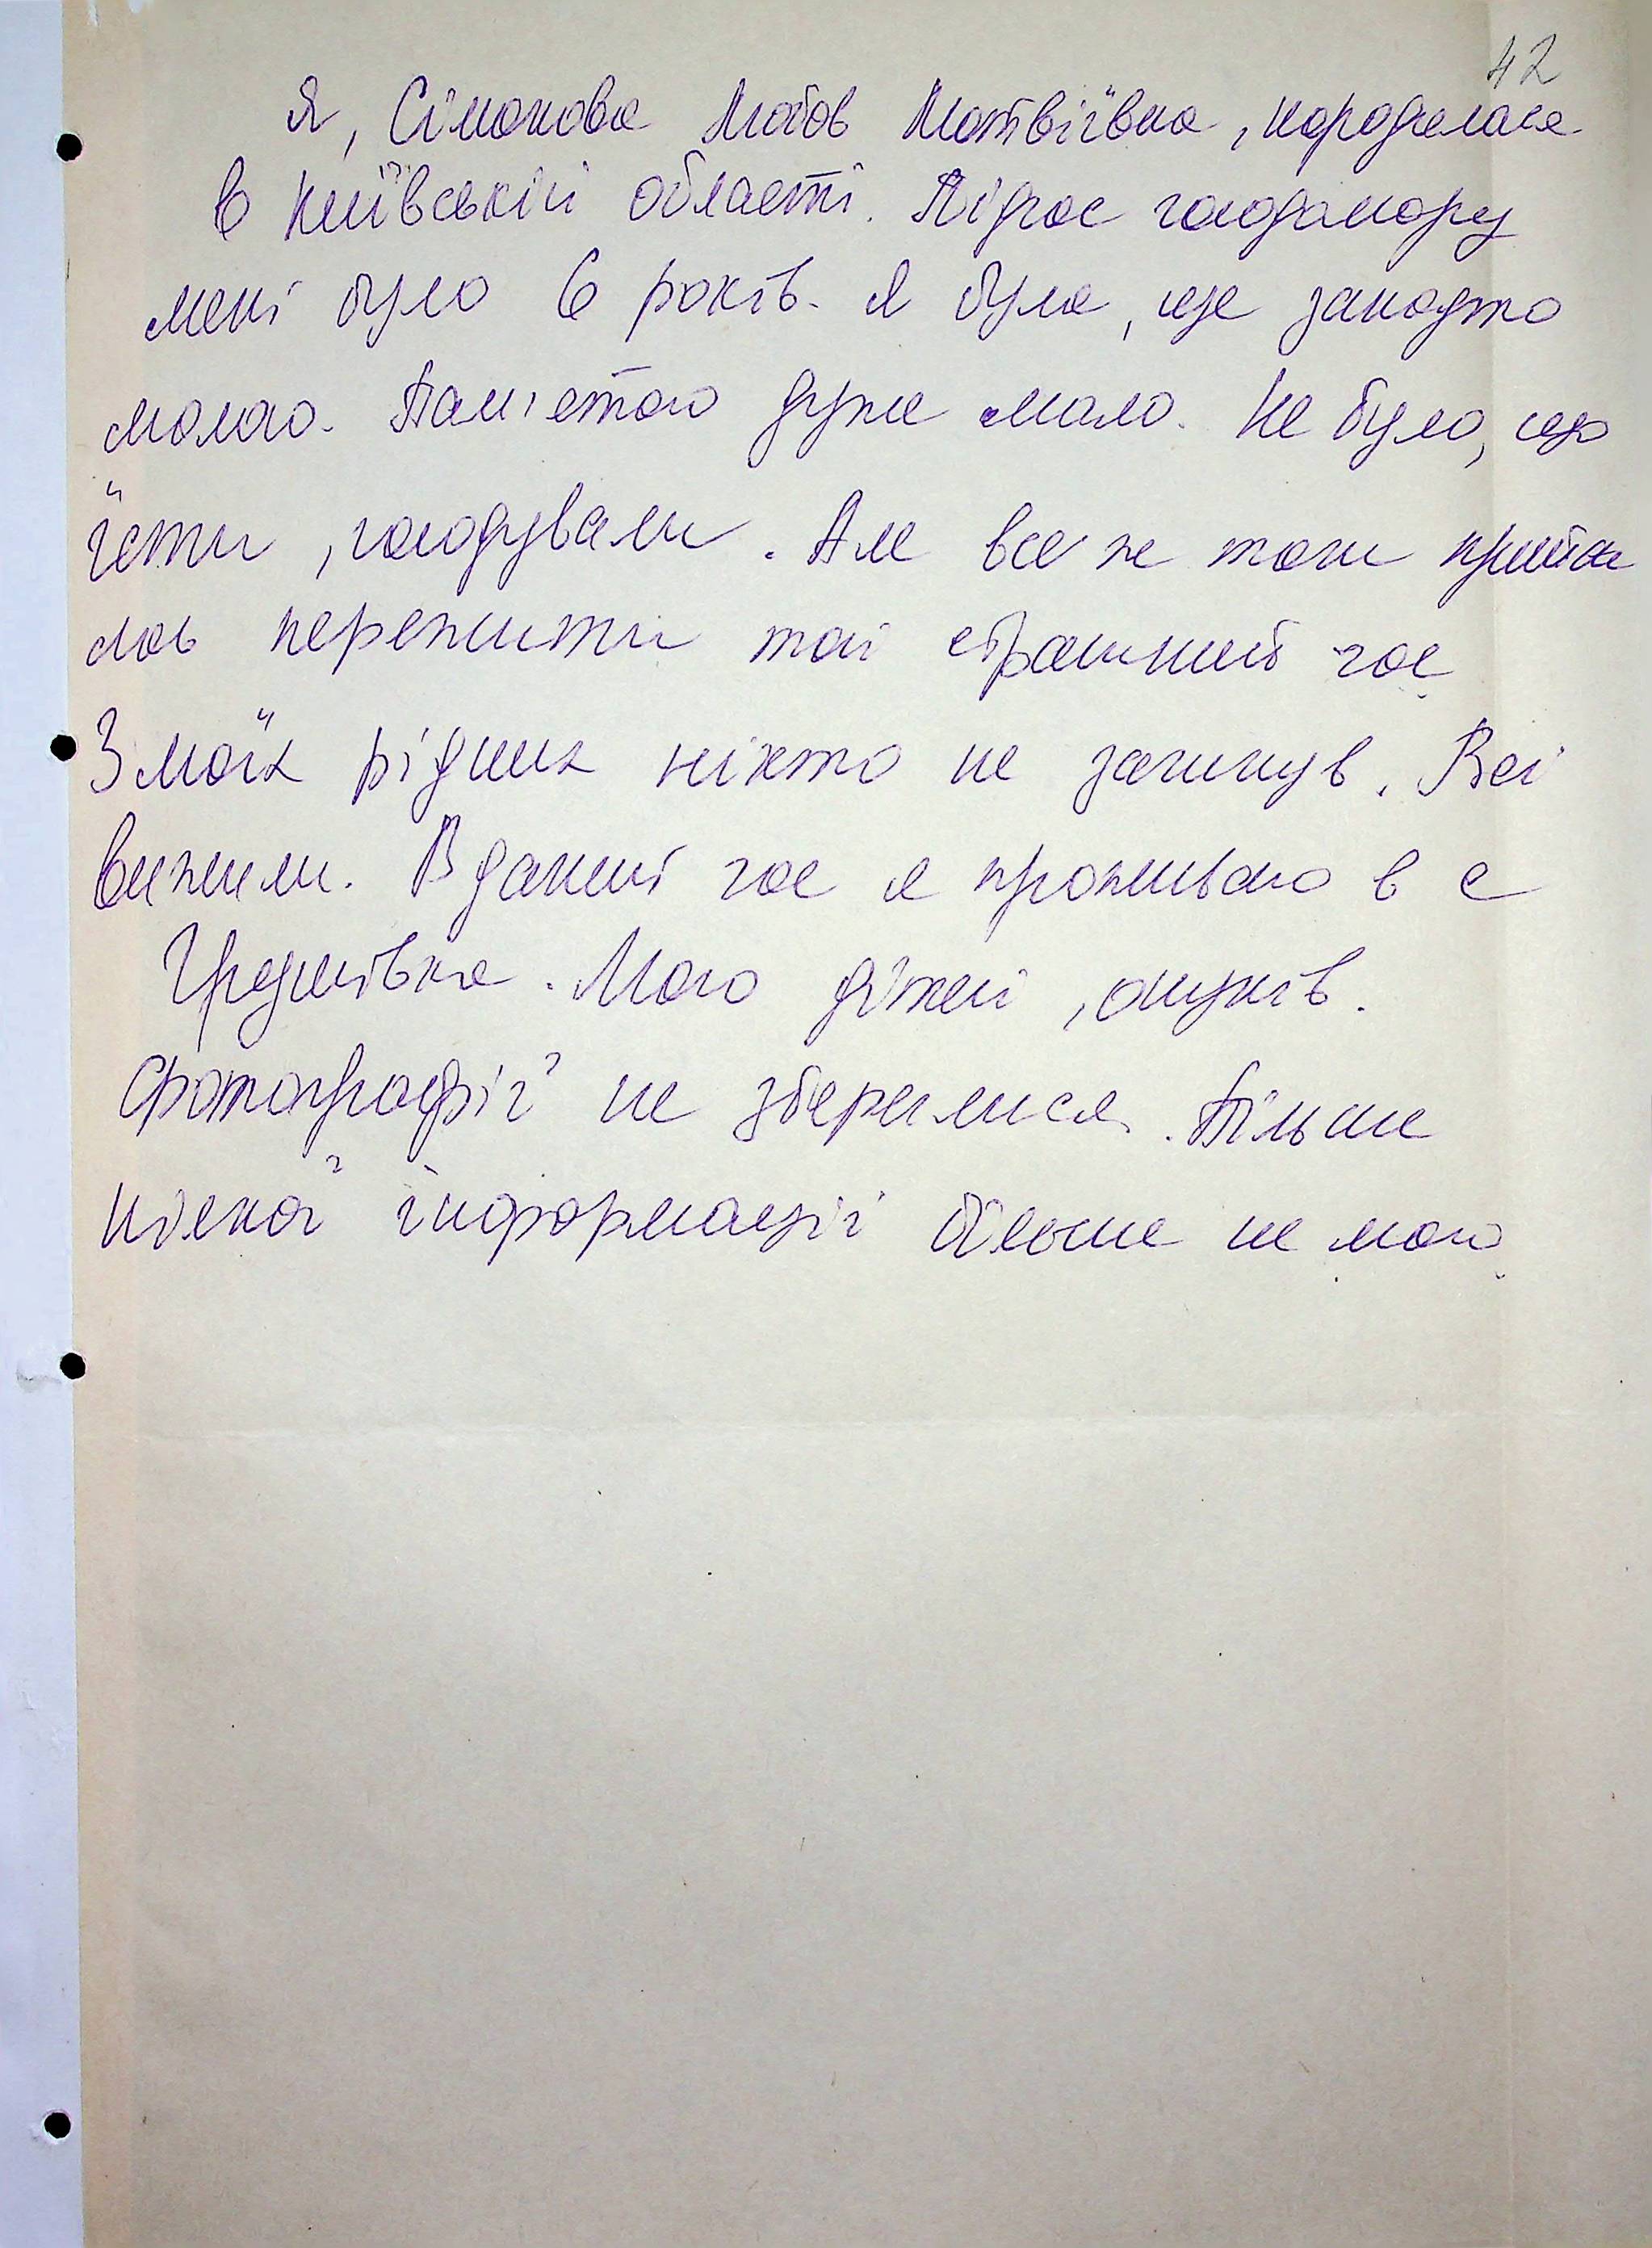 42
Я, Сімакова Любов Матвіївна, народилася
в Київській області. Підчас голодомору
мені було 6 років. Я була, ще занадто
малою. Пам'етаю дуже мало. Не було, що
їсти, голодували. Але все ж таки прийш
лось пережити той страшний час.
З моїх рідних ніхто не загинув. Всі
вижили. В даний час я проживаю в с
Мою дітей, онуків.
Фотографії не збереглися. Більше
ніякої інформації більше не маю.